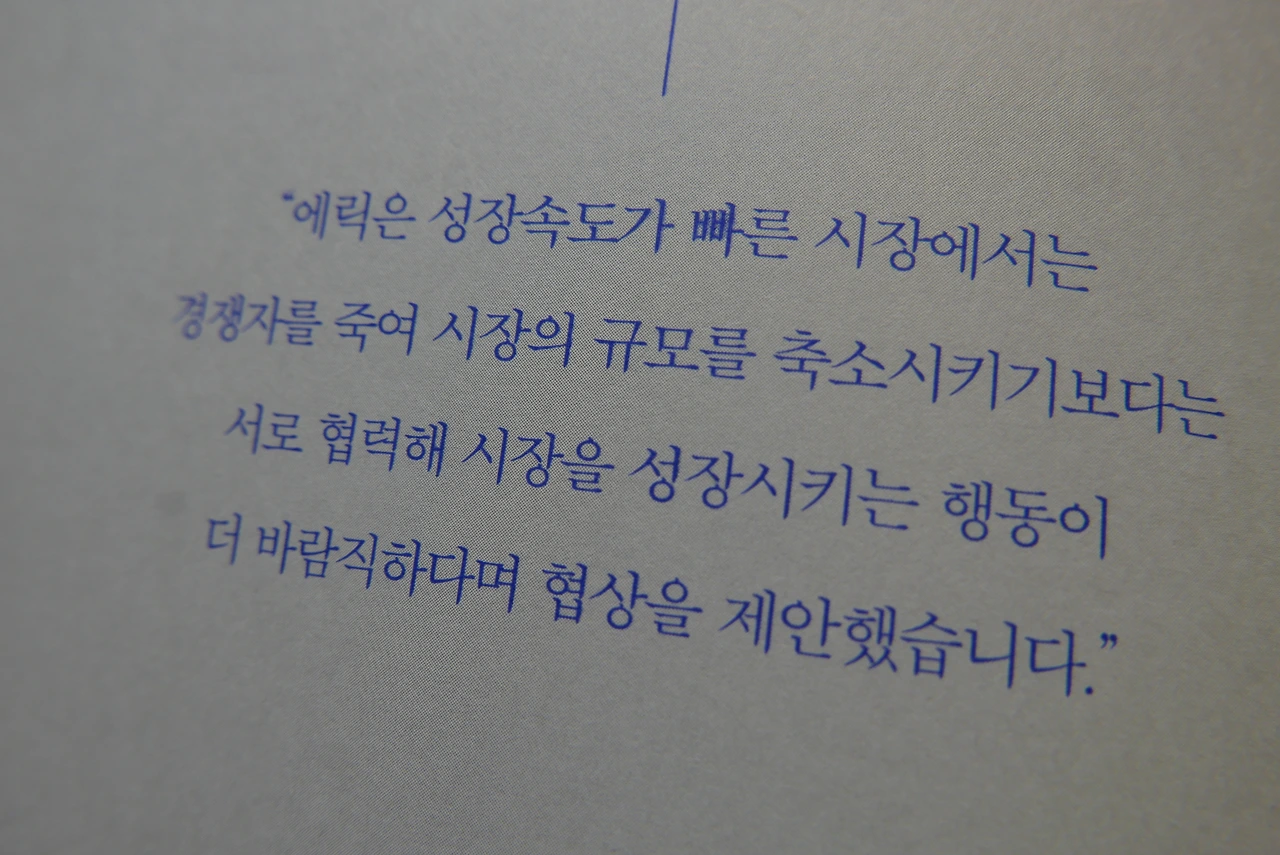 “에릭은 성장속도가 빠른 시장에서는
경쟁자를 죽여 시장의 규모를 축소시키기보다는
서로 협력해 시장을 성장시키는 행동이
더 바람직하다며 협상을 제안했습니다.”